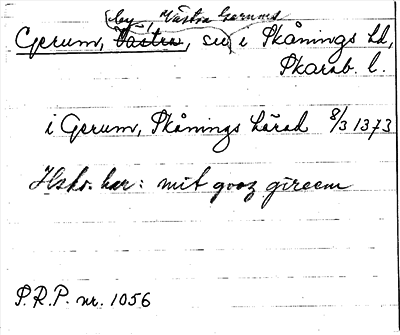 by, Västra Gerums
Gerum, Västra, sn i Skånings hd,
Skarab. l.
i Gerum, Skånings härad 8/3 1373
Hskr. har: mit gooz gireem
P.R.P. nr. 1056